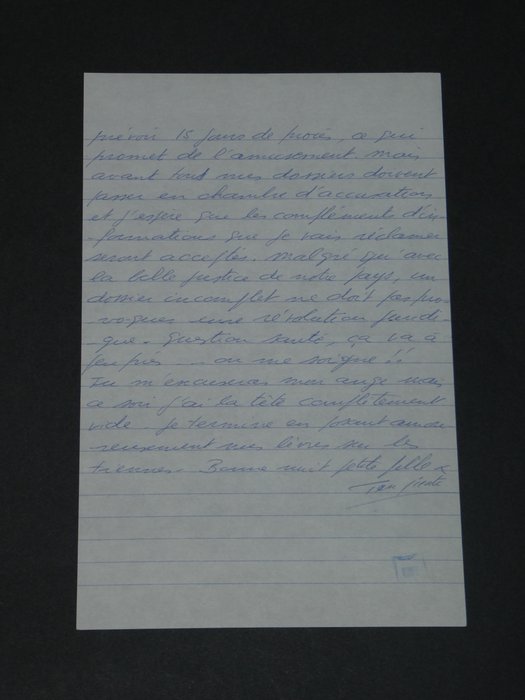 prévoir 15 jours de procès, ce qui
promet de l'amusement. Mais
avant tout mes dossiers doivent
passer en chambre d'accusation
et j'espère que les compléments d'in-
-formations que je vais réclamer
seront acceptés. Malgré qu'avec
la belle justice de notre pays, un
dossier incomplet ne doit pas pro-
voquer une révolution juridi-
que. Question santé, ça va à
peu près ... on me soigne !!
Tu m'excuseras mon ange mais
ce soir j'ai la tête complètement
vide. Je termine en posant amou-
reusement mes lèvres sur les
tiennes. Bonne nuit petite fille x
Ton